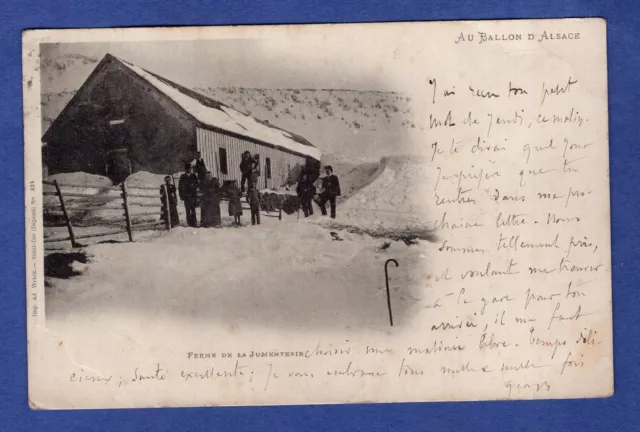 AU BALLON D'ALSACE
J'ai reçu ton petit
mot de jeudi, ce matin.
Je te dirai quel jour
je préfère que tu
rentres dans ma pro-
chaine lettre. Nous
sommes tellement pris,
et voulant me trouver
à la gare pour ton
arrivée, il me faut
FERME DE LA JUMENTERIE
choisir une matinée libre. Temps déli-
cieux; Santé excellente; Je vous embrasse tous mille et mille fois
Georges
Imp. Ad. Weick. — Saint-Dié (Déposé) No